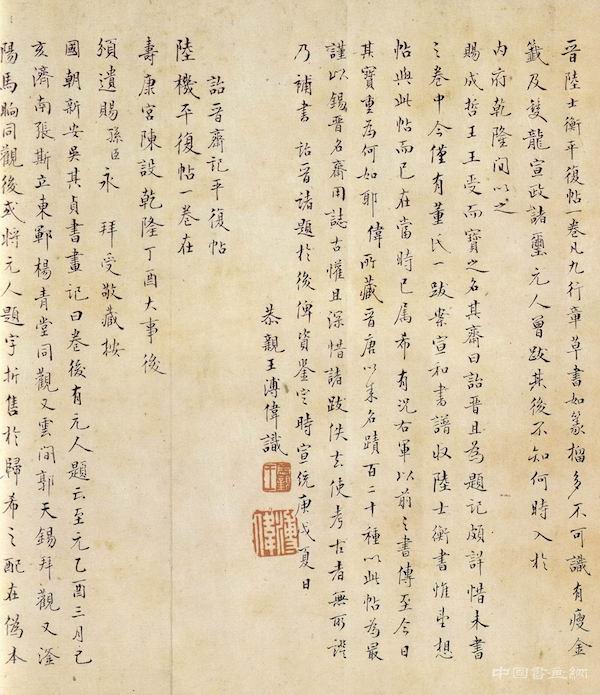 晉陸士衡平復帖一卷凡九行章草書如篆籀多不可識有瘦金
籤及雙龍宣政諸璽元人曾跋其後不知何時入於
內府乾隆間以之
賜成哲王王受而寶之名其齋曰詒晉且為題記頗詳惜未書
之卷中今僅有董氏一跋案宣和書譜收陸士衡書惟望想
帖與此帖而已在當時已屬希有況右軍以前之書傳至今日
其寶重為何如耶偉所藏晉唐以來名蹟百二十種以此帖為最
謹以錫晉名齋用誌古懽且深惜諸跋佚去使考古者無所證
乃補書詒晉諸題於後俾資鑒定時宣統庚戌夏日
恭親王溥偉識
詒晉齋記平復帖
陸機平復帖一卷在
壽康宮陳設乾隆丁酉大事後
頒遺賜孫臣永 拜受敬藏按
國朝新安吳其貞書畫記曰卷後有元人題云至元乙酉三月己
亥濟南張斯立東鄆楊青堂同觀又雲間郭天錫拜觀又滏
陽馬昫同觀後或將元人題字折售於歸希之配在偽本
中国书画网